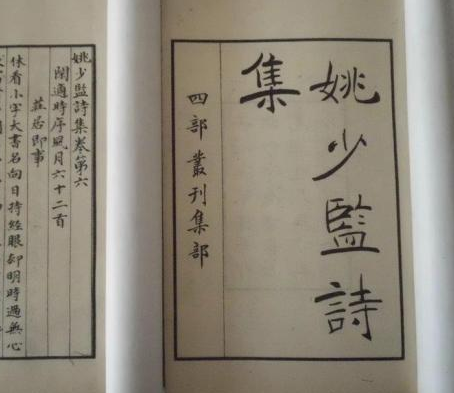 姚少監詩
集
四部叢刊集部
姚少監詩集卷第六
閑適時序風月六十二首
莊居即事
休看小字大書名向日持經眼却明時過無心